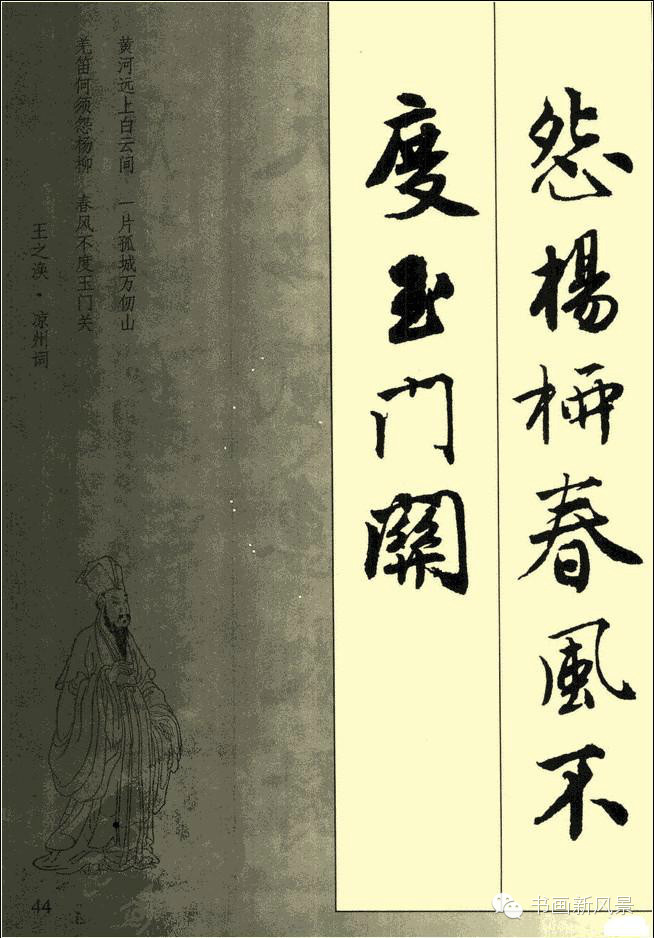 怨楊柳春風不
度玉門關
黄河远上白云间 一片孤城万仞山
羌笛何须怨杨柳 春风不度玉门关
王之涣·凉州词
44
书画新风景